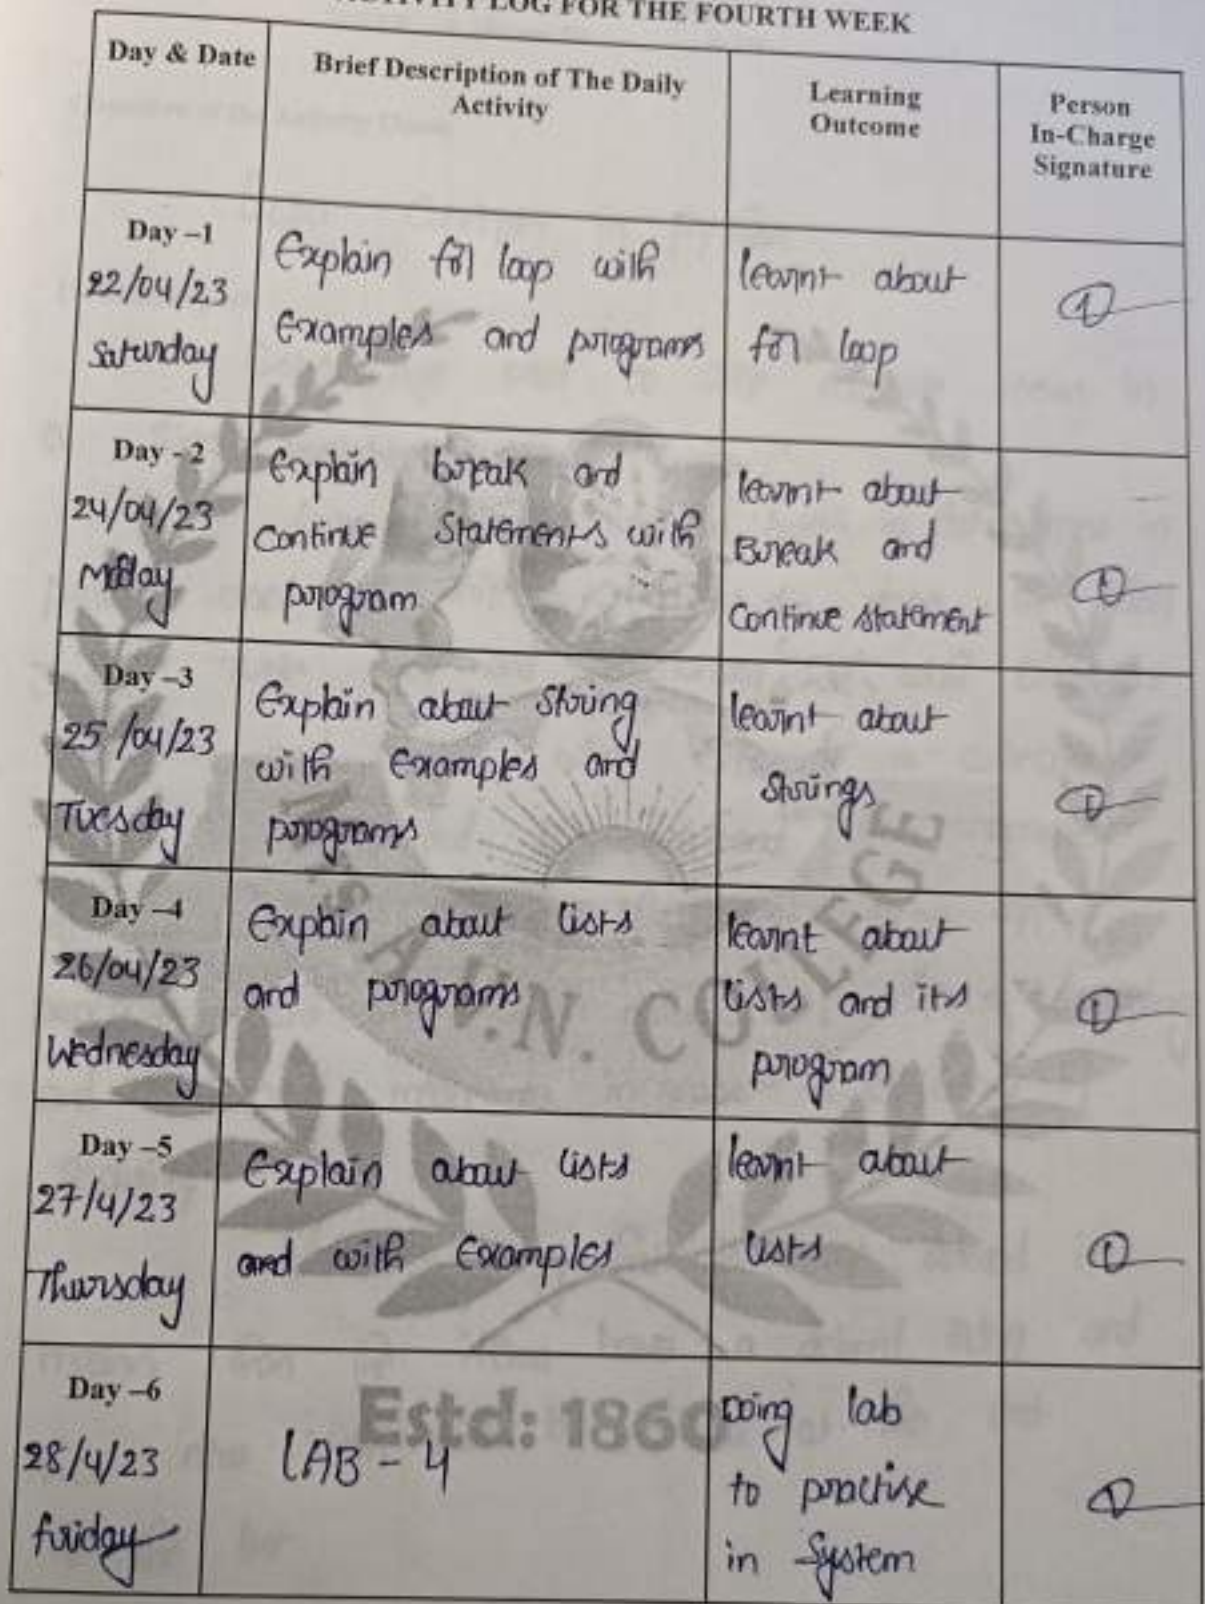 ACTIVITY LOG FOR THE FOURTH WEEK
Day & Date
Brief Description of The Daily
Activity
Learning
Outcome
Person
In-Charge
Signature
Day –1
22/04/23
Saturday
Explain for loop with
Examples and programs
learnt about
for loop
Day - 2
24/04/23
Monday
Explain break and
Continue Statements with
program
learnt about
Break and
Continue statement
Day –3
25/04/23
Tuesday
Explain about String
with Examples and
programs
learnt about
Strings
Day –4
26/04/23
Wednesday
Explain about lists
and programs
learnt about
lists and its
program
Day –5
27/4/23
Thursday
Explain about lists
and with Examples
learnt about
lists
Day –6
28/4/23
friday
LAB - 4
Doing lab
to practise
in System
A.V.N. COLLEGE
Estd: 1860